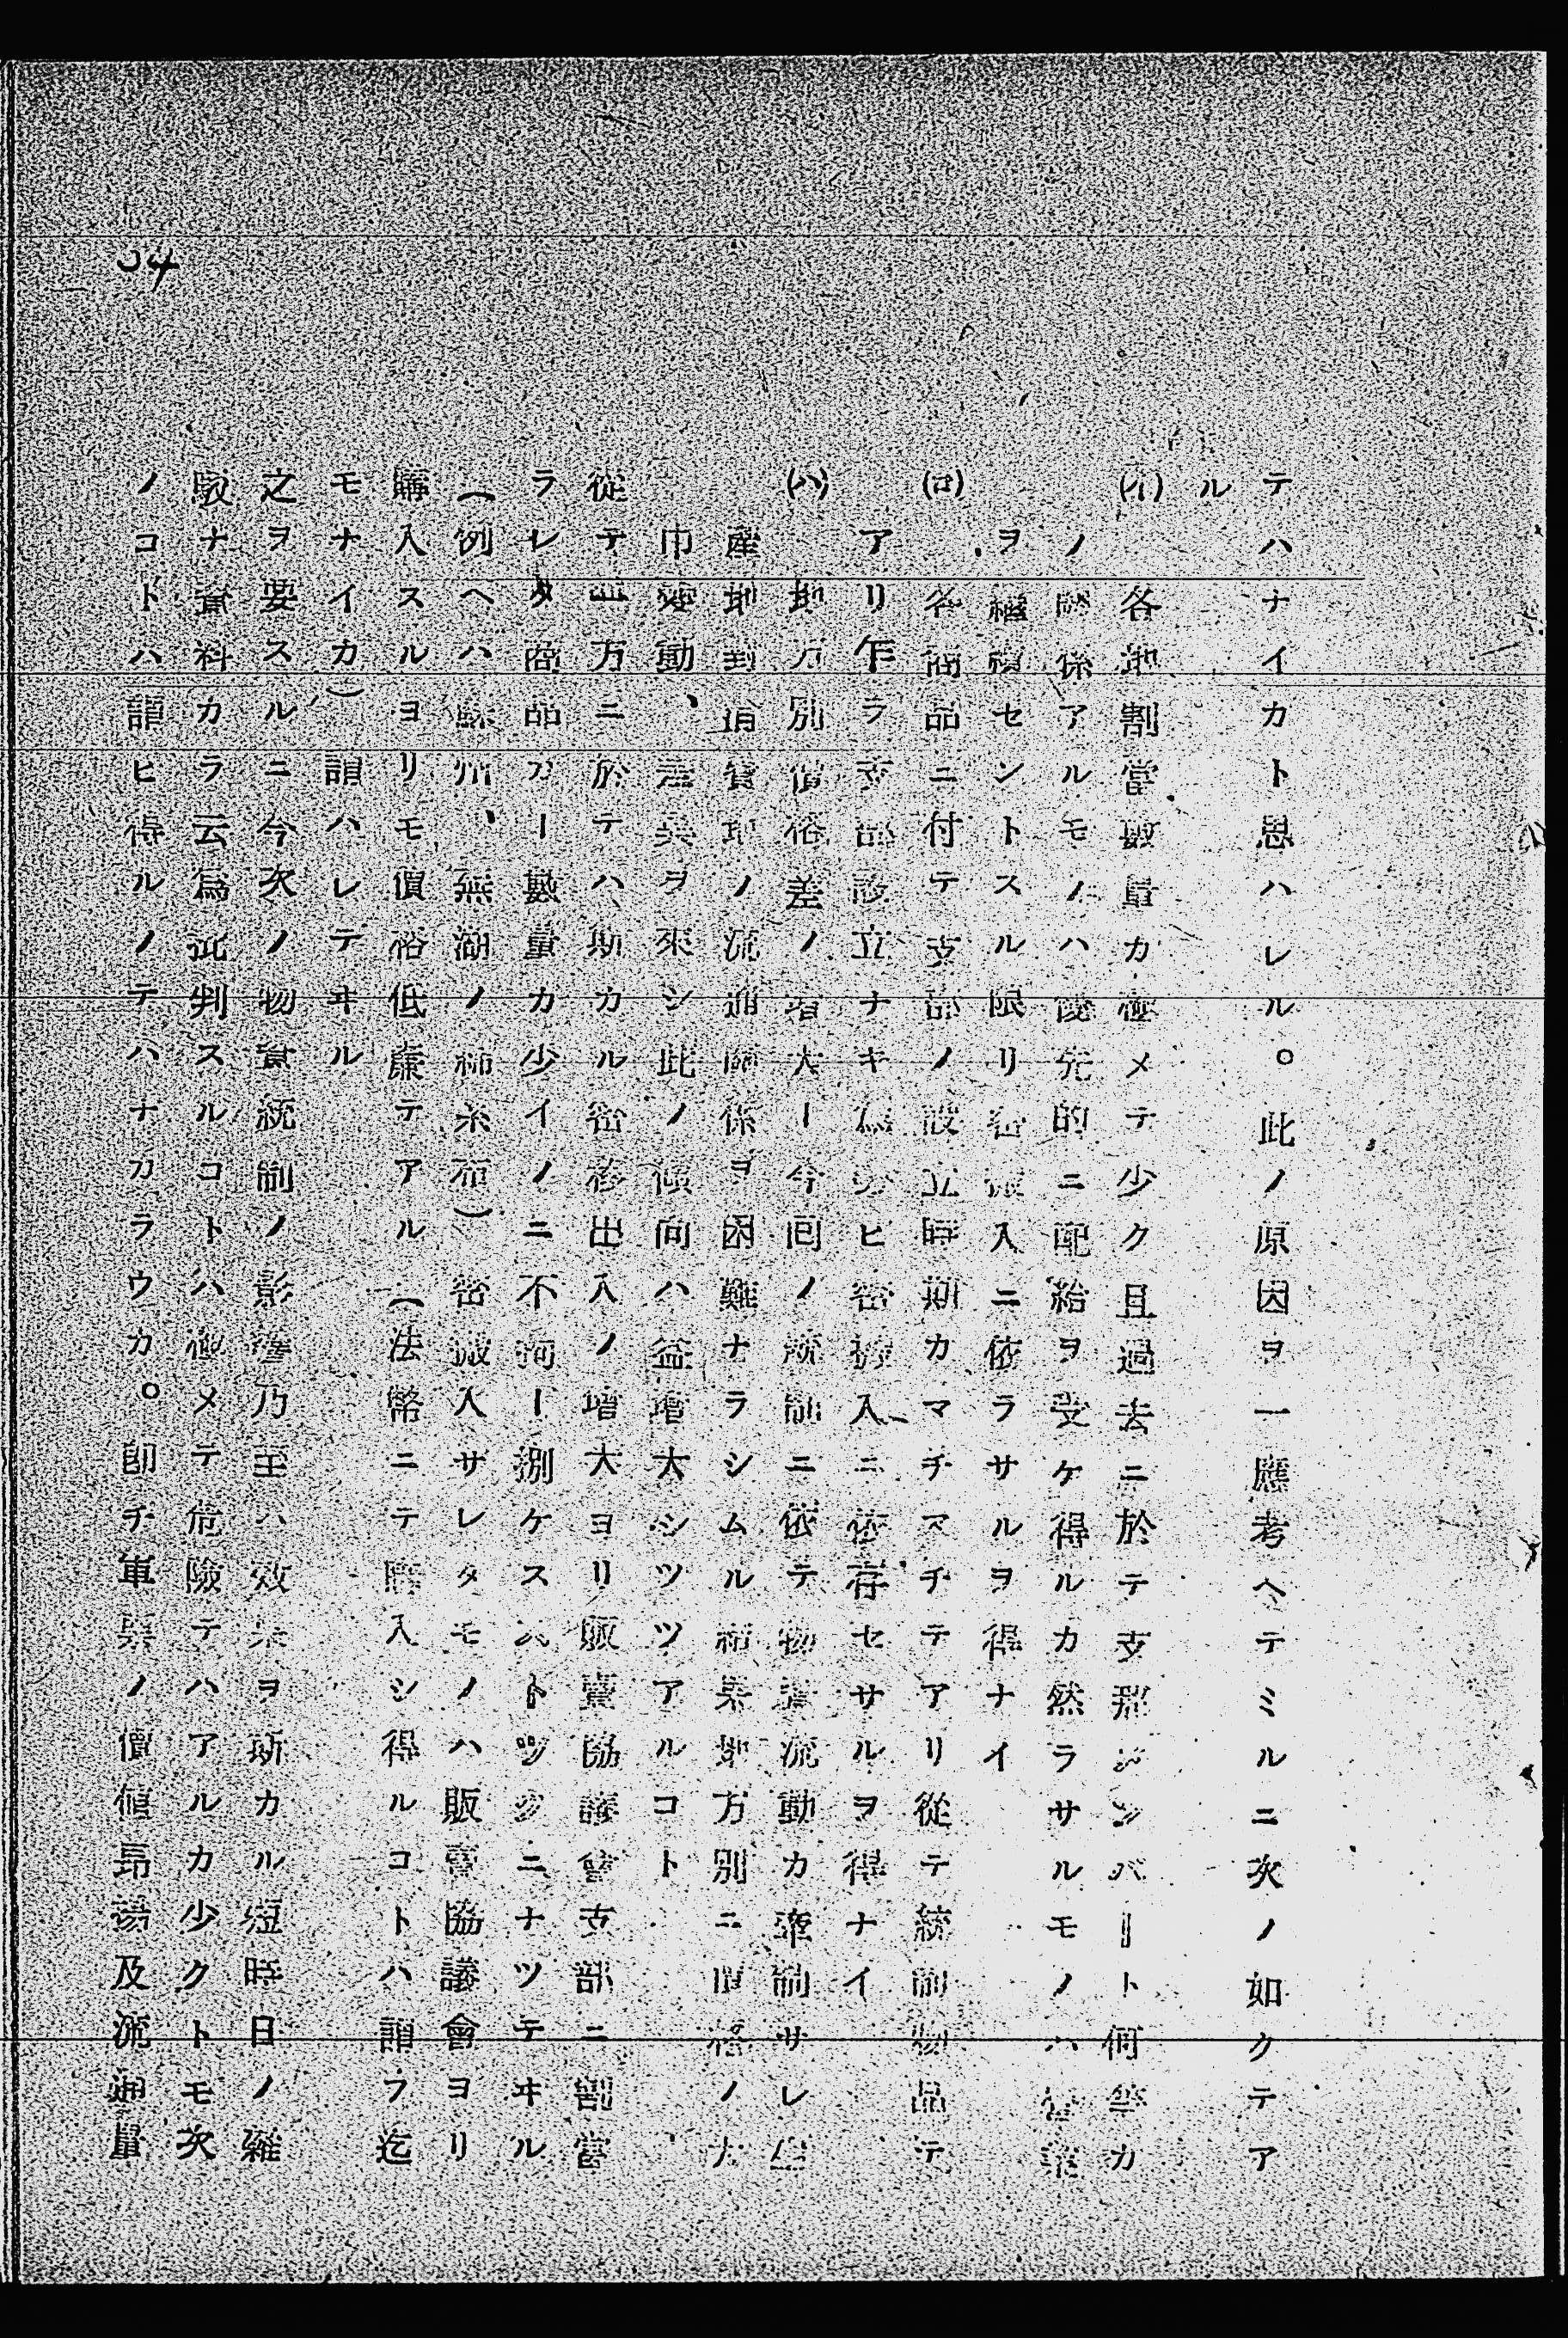 テハナイカト思ハレル。此ノ原因ヲ一應考ヘテミルニ次ノ如クテア
ル
(イ) 各地割當數量カ極メテ少ク且過去ニ於テ支那メンバートト何等カ
ノ關係アルモノハ優先的ニ配給ヲ受ケ得ルカ然ラサルモノハ營業
ヲ繼續セントスル限リ密搬入ニ依ラサルヲ得ナイ
(ロ) 各商品ニ付テ支部ノ設立時期カマチマチテアリ從テ統制物品テ
アリ乍ラ支部設立ナキ爲勢ヒ密搬入ニ依存セサルヲ得ナイ
(ハ) 地方別價格差ノ增大ー今回ノ統制ニ依テ物資流動カ牽制サレ生
產地對消費地ノ流通關係ヲ困難ナラシムル結果地方別ニ價格ノ大
巾變動、差異ヲ來シ此ノ傾向ハ益增大シツツアルコト
從テ一方ニ於テハ斯カル密移出入ノ增大ヨリ販賣協議會支部ニ割當
ラレタ商品カー數量カ少イノニ不拘ー捌ケスストツクニナツテヰル
(例ヘハ蘇州、無湖ノ綿糸布)密搬入サレタモノハ販賣協議會ヨリ
購入スルヨリモ價格低廉テアル(法幣ニテ購入シ得ルコトハ謂フ迄
モナイカ)謂ハレテヰル
之ヲ要スルニ今次ノ物資統制ノ影響乃至ハ效果ヲ斯カル短時日ノ雜
駁ナ資料カラ云爲批判スルコトハ極メテ危險テハアルカ少クトモ次
ノコトハ謂ヒ得ルノテハナカラウカ。卽チ軍票ノ價値昂揚及流通量